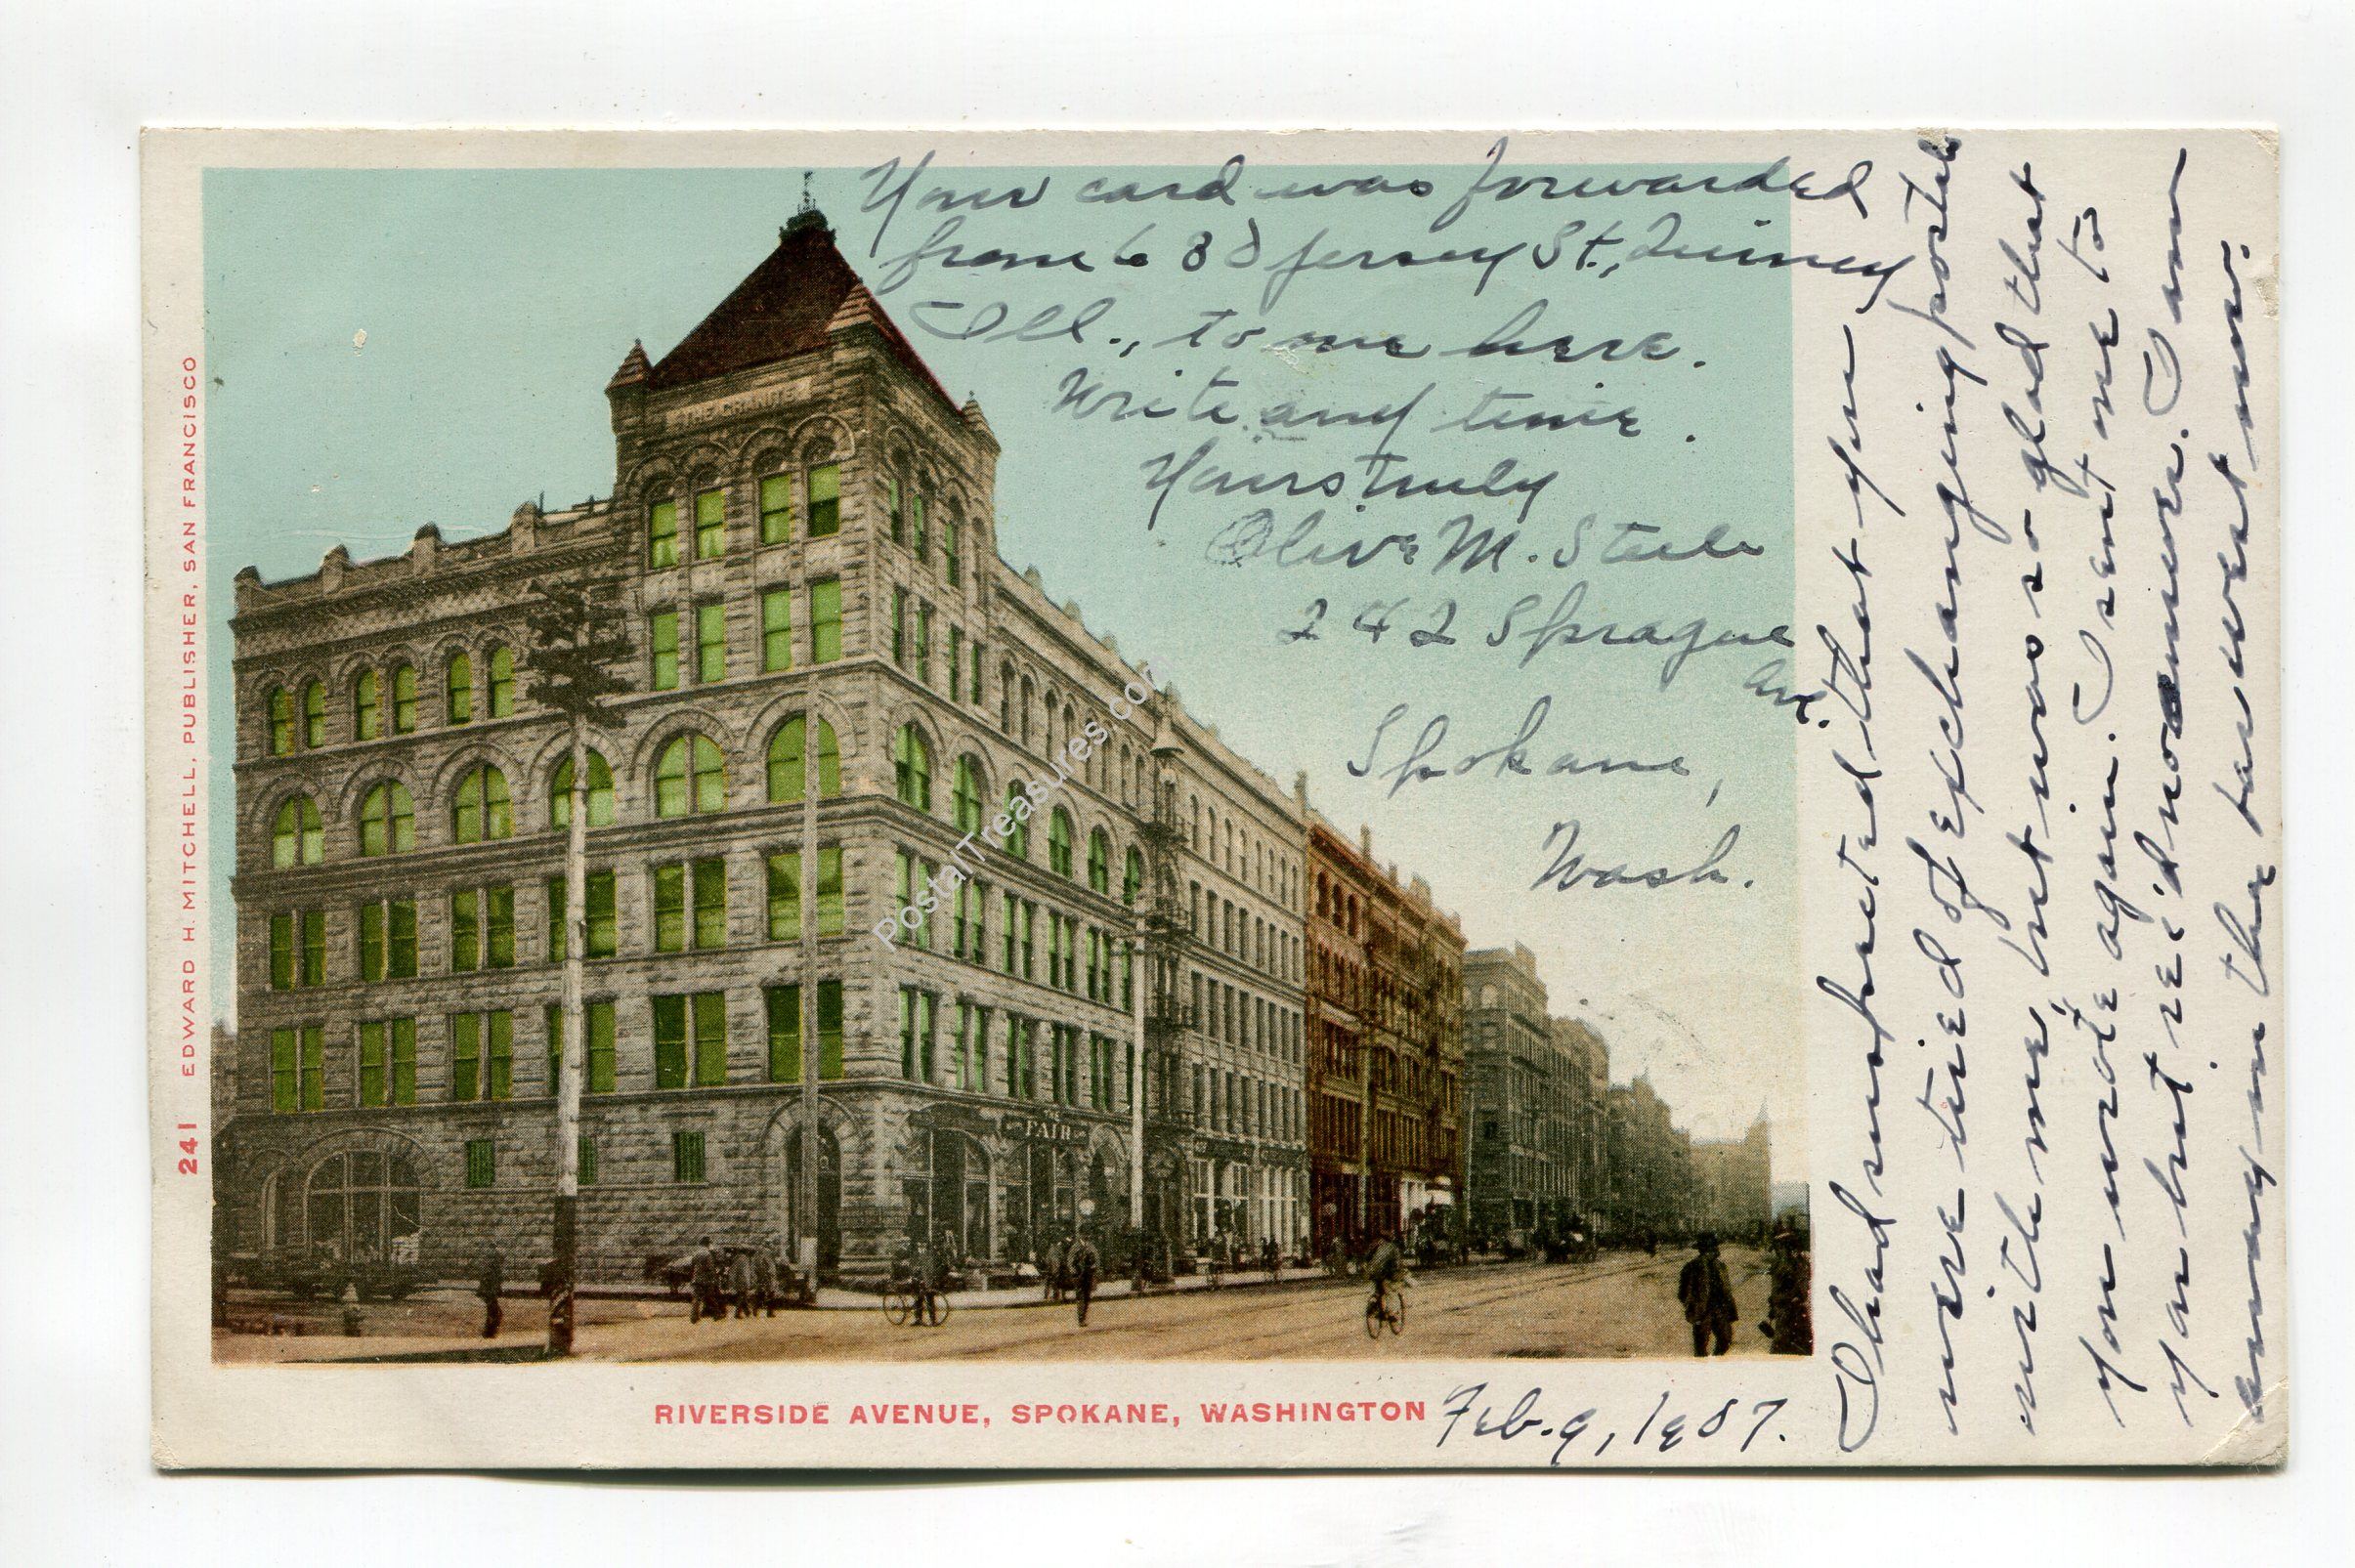 Your card was forwarded
from 630 Jersey St., Quincy
Ill., to me here.
Write any time.
Yours truly
Olive M. Steele
242 Sprague
Ave.
Spokane,
Wash.
I had supposed that you
were tired of exchanging postals
with me, but was so glad that
you wrote again. I sent one to
you but rec'd no answer. I am
away in the far west now.
Feb. 9, 1907.
THE GRANITE
THE
FAIR
RIVERSIDE AVENUE, SPOKANE, WASHINGTON
241 EDWARD H. MITCHELL, PUBLISHER, SAN FRANCISCO
PostalTreasures.com